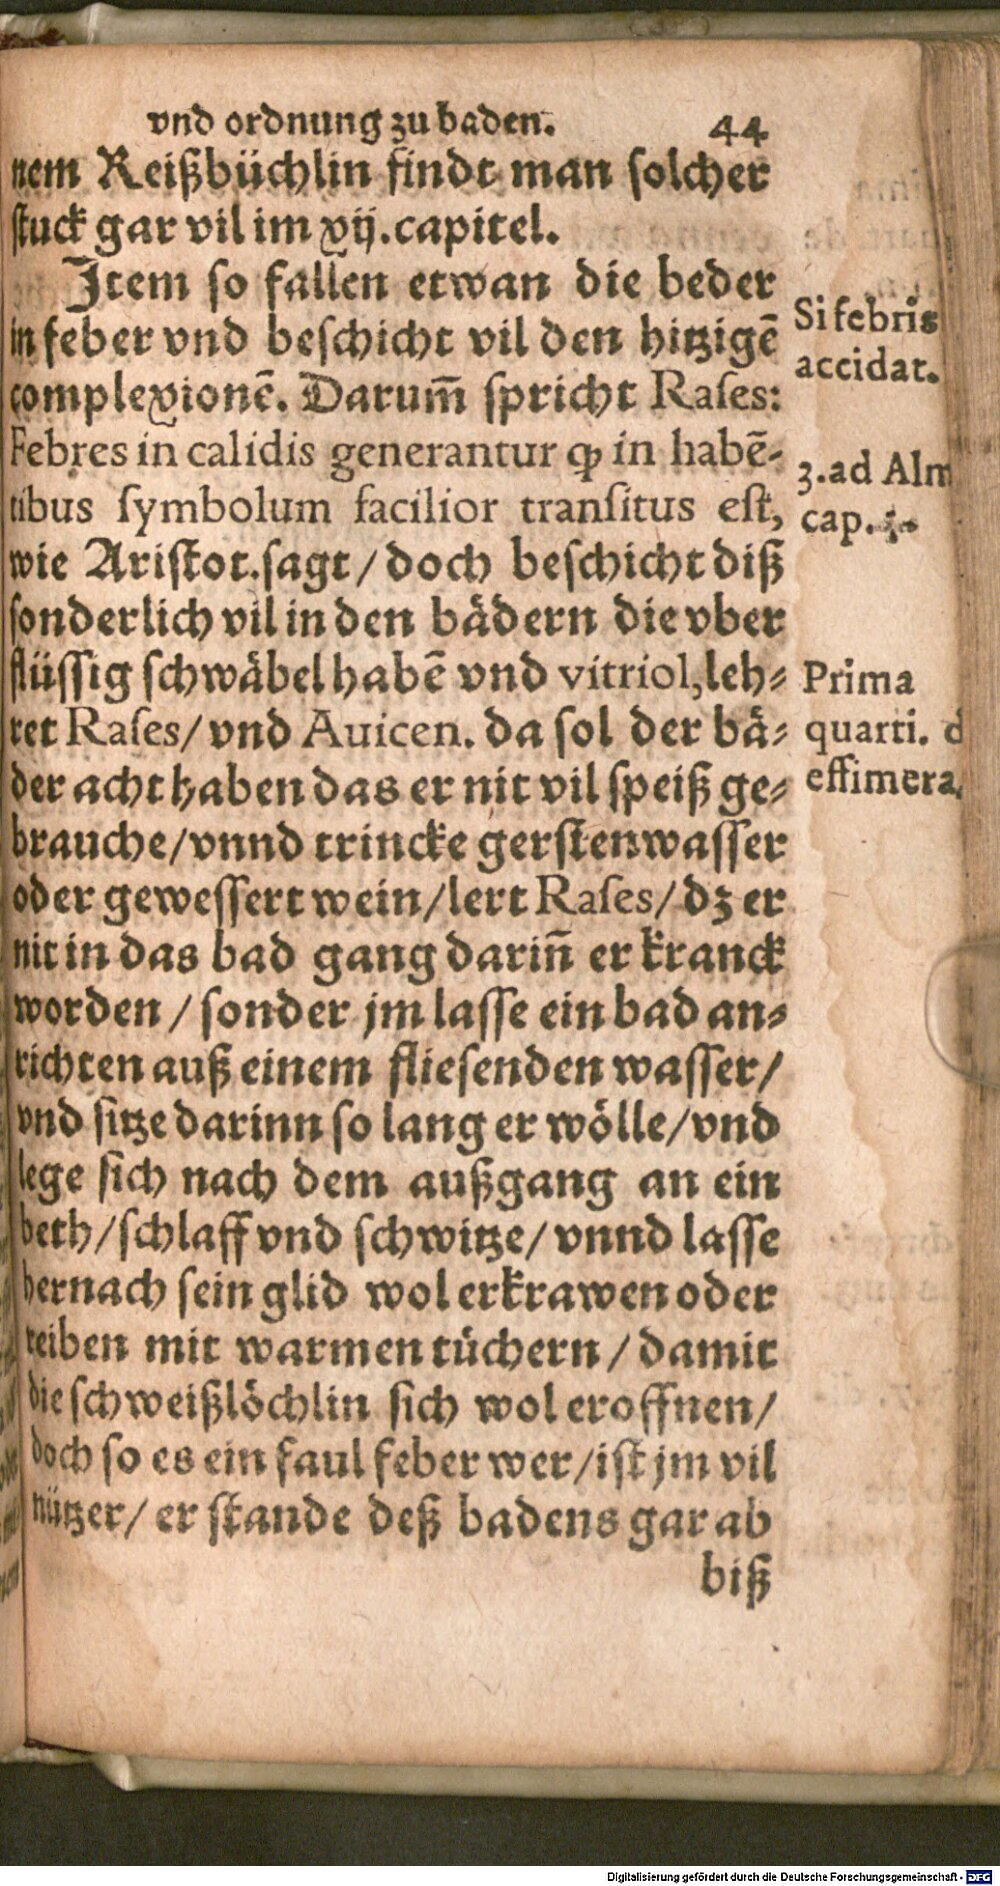 vnd ordnung zu baden. 44
nem Reißbüchlin findt man solcher
stuck gar vil im xij. capitel.
Item so fallen etwan die beder
in feber vnd beschicht vil den hitzigē
complexionē. Darum̃ spricht Rases:
Febres in calidis generantur qꝫ in habē-
tibus symbolum facilior transitus est,
wie Aristot. sagt / doch beschicht diß
sonderlich vil in den bädern die vber
flüssig schwäbel habē vnd vitriol, leh-
ret Rases / vnd Auicen. da sol der bä-
der acht haben das er nit vil speiß ge-
brauche / vnnd trincke gerstenwasser
oder gewessert wein / lert Rases / dz er
nit in das bad gang darin̄ er kranck
worden / sonder jm lasse ein bad an-
richten auß einem fliesenden wasser /
vnd sitze darinn so lang er wölle / vnd
lege sich nach dem außgang an ein
beth / schlaff vnd schwitze / vnnd lasse
hernach sein glid wol erkrawen oder
reiben mit warmen tüchern / damit
die schweißlöchlin sich wol eroffnen /
doch so es ein faul feber wer / ist jm vil
nützer / er stande deß badens gar ab
biß
Si febris
accidat.
3. ad Alm
cap.
Prima
quarti. d
effimera.
Digitalisierung gefördert durch die Deutsche Forschungsgemeinschaft - DFG